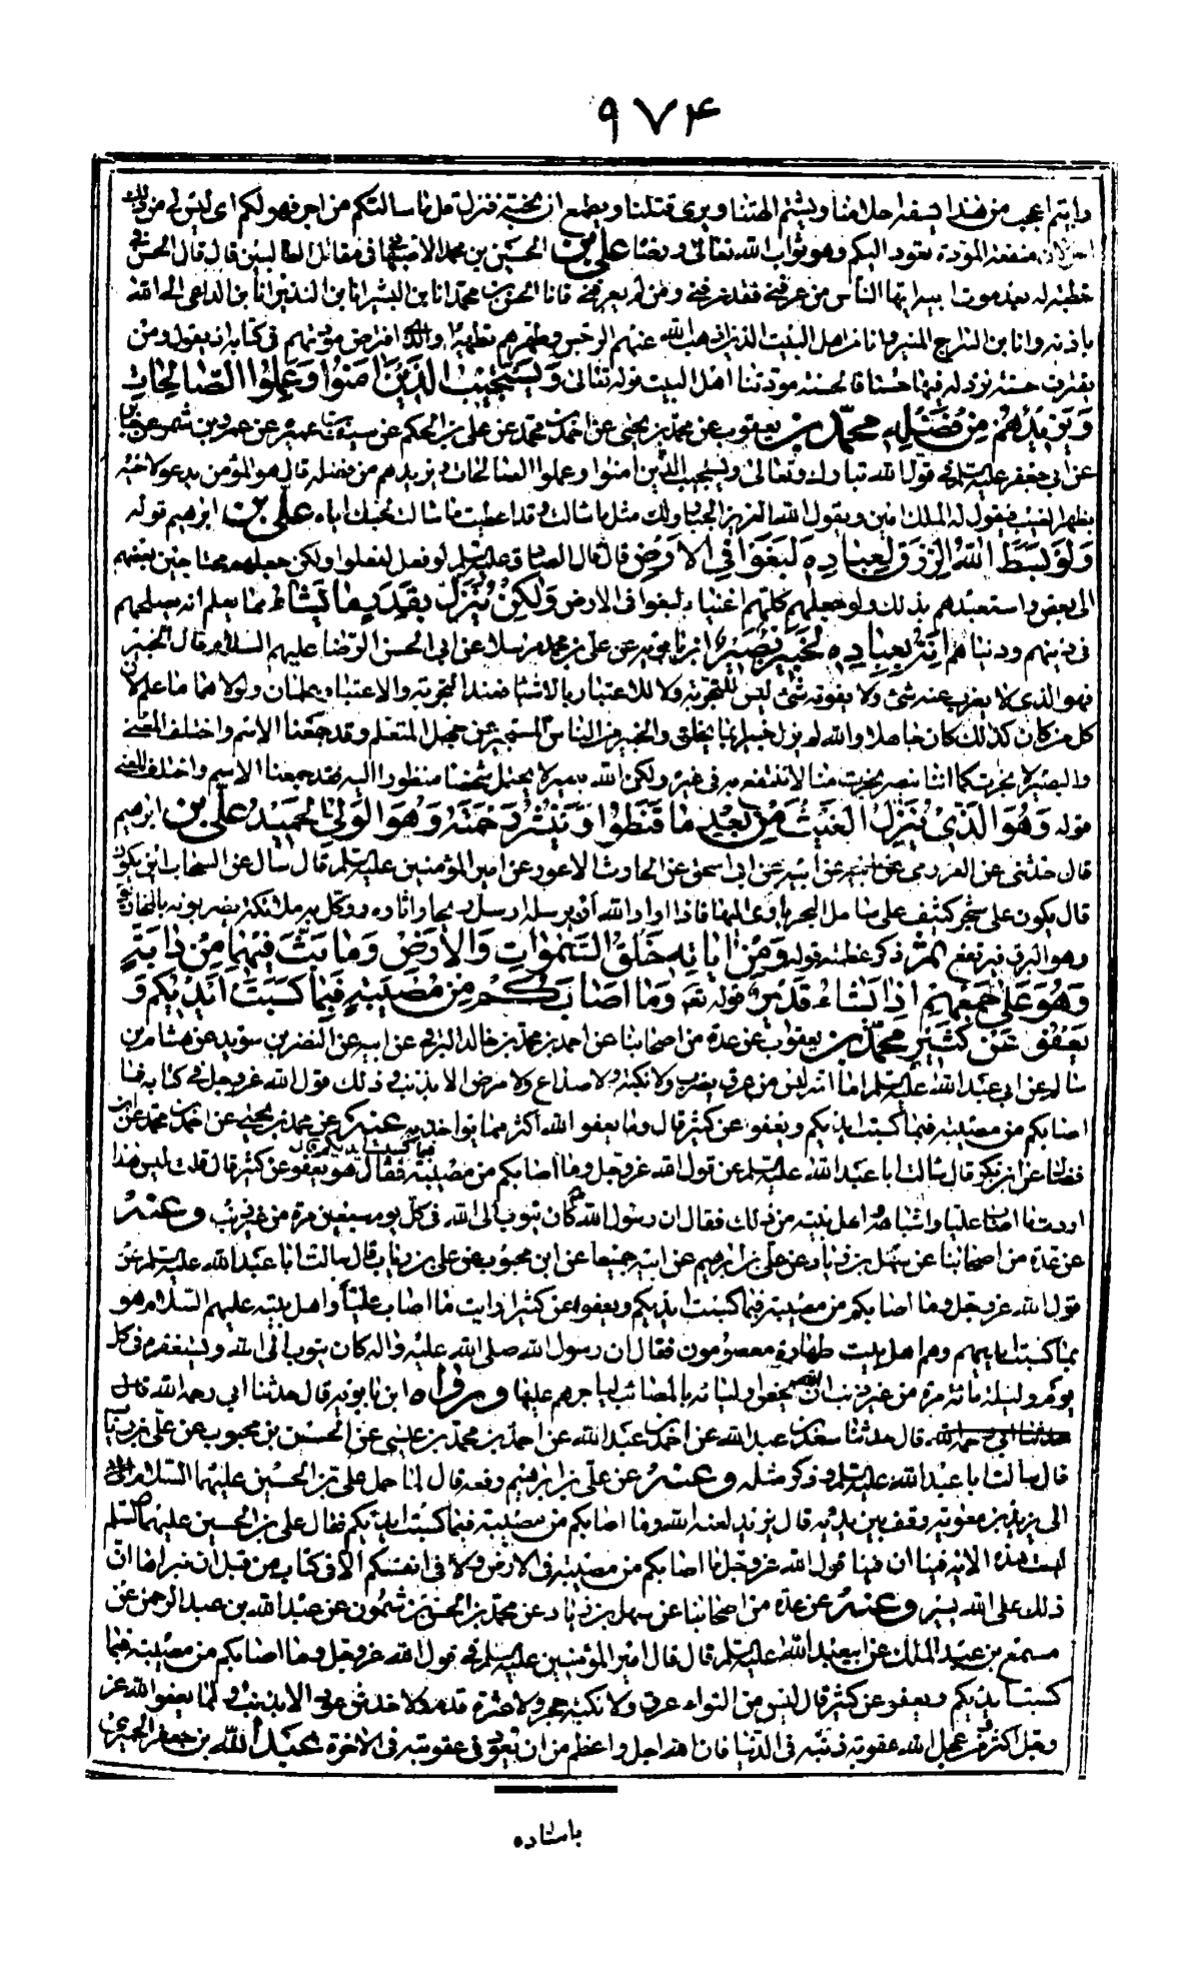 ٩٧۴
رايتم اعجب من هذا يسفه احلامنا ويشتم الهتنا ويرى قتلنا ويطمع ان نحبه فنزلت قل ما سالتكم من اجر فهو لكم اى ليس لى من ذلك
منفعة المودة تعود اليكم وهو ثواب الله تعالى ورضا علي بن الحسين بن محمد الاصبهانى فى مقاتل الطالبيين قال قال الحسن فى
خطبته بعد موت ابيه ايها الناس من عرفنى فقد عرفنى ومن لم يعرفنى فانا الحسن بن محمد انا بن البشير انا بن النذير انا بن الداعى الى الله
باذنه وانا بن السراج المنير وانا من اهل البيت الذين اذهب الله عنهم الرجس وطهرهم تطهيرا والذين افترض مودتهم فى كتابه اذ يقول ومن
يقترف حسنة نزد له فيها حسنا فالحسنة مودتنا اهل البيت قوله تعالى وَيَسْتَجِيبُ الَّذِينَ آمَنُوا وَعَمِلُوا الصَّالِحَاتِ
وَيَزِيدُهُمْ مِنْ فَضْلِهِ محمد بن يعقوب عن محمد بن يحيى عن احمد بن محمد عن على بن الحكم عن سيف بن عميرة عن عمرو بن شمر عن جابر
عن ابى جعفر عليه السلم فى قول الله تبارك وتعالى ويستجيب الذين امنوا وعملوا الصالحات ويزيدهم من فضله قال هو المؤمن يدعو لاخيه
بظهر الغيب فيقول له الملك امين ويقول الله العزيز الجبار ولك مثل ما سالت وقد اعطيت ما سالت لحبك اياه علي بن ابرهيم قوله
وَلَوْ بَسَطَ اللهُ الرِّزْقَ لِعِبَادِهِ لَبَغَوْا فِي الْاَرْضِ قال قال الصادق عليه السلم لو فعل لفعلوا ولكن جعلهم محتاجين بعضهم
الى بعض واستعبدهم بذلك ولو جعلهم كلهم اغنياء لبغوا فى الارض وَلَكِنْ يُنَزِّلُ بِقَدَرٍ مَا يَشَاءُ مما يعلم انه يصلحهم
فى دينهم ودنياهم اِنَّهُ بِعِبَادِهِ لَخَبِيرٌ بَصِيرٌ ابن بابويه عن على بن محمد مرسلا عن ابى الحسن الرضا عليهم السلام قال الخبير
فهو الذى لا يعزب عنه شئ ولا يفوته شئ ليس للتجربة ولا للاعتبار بالاشياء فعند التجربة والاعتبار علمان ولولا هما ما علم لان
كل من كان كذلك كان جاهلا والله لم يزل خبيرا بما يخلق والخبير من الناس المستخبر عن جهل المتعلم وقد جمعنا الاسم واختلف المعنى
والبصير لا بخرت كما انا نبصر بخرت منا لا ننتفع به فى غيره ولكن الله بصير لا يحتمل شخصا منظورا اليه فقد جمعنا الاسم واختلف المعنى
قوله وَهُوَ الَّذِي يُنَزِّلُ الْغَيْثَ مِنْ بَعْدِ مَا قَنَطُوا وَيَنْشُرُ رَحْمَتَهُ وَهُوَ الْوَلِيُّ الْحَمِيدُ علي بن ابرهيم
قال حدثنى عن العرزمى عن ابيه عن ابى اسحق عن الحارث الاعور عن امير المؤمنين عليه السلم قال سال عن السحاب اين يكون
قال يكون على شجر كثيف على ساحل البحر ياوى اليها فاذا اراد الله ان يرسله ارسل ريحا واثاره ووكل به ملائكة يضربونه بالمخاريق
وهو البرق فيرتفع ثم ذكر عظمته قوله وَمِنْ آيَاتِهِ خَلْقُ السَّمَوَاتِ وَالْاَرْضِ وَمَا بَثَّ فِيهِمَا مِنْ دَابَّةٍ
وَهُوَ عَلَى جَمْعِهِمْ اِذَا يَشَاءُ قَدِيرٌ قوله تعه وَمَا اَصَابَكُمْ مِنْ مُصِيبَةٍ فَبِمَا كَسَبَتْ اَيْدِيكُمْ وَ
يَعْفُو عَنْ كَثِيرٍ محمد بن يعقوب عن عدة من اصحابنا عن احمد بن محمد بن خالد البرقى عن ابيه عن النضر بن سويد عن هشام بن
سالم عن ابى عبد الله عليه السلم اما انه ليس من عرق يضرب ولا نكبة ولا صداع ولا مرض الا بذنب وذلك قول الله عز وجل فى كتابه وما
اصابكم من مصيبة فبما كسبت ايديكم ويعفو عن كثير قال وما يعفو الله اكثر مما يؤاخذ به عنه عن محمد بن يحيى عن احمد بن محمد عن ابن
فضال عن ابن بكير قال سالت ابا عبد الله عليه السلم عن قول الله عز وجل وما اصابكم من مصيبة فبما كسبت ايديكم قال فقال هو يعفو عن كثير قال قلت ليس هذا
اردت ما اصاب عليا واشباهه اهل بيته من ذلك فقال ان رسول الله ص كان يتوب الى الله فى كل يوم سبعين مرة من غير ذنب وعنه
عن عدة من اصحابنا عن سهل بن زياد وعن على بن ابرهيم عن ابيه جميعا عن ابن محبوب عن على بن رياب قال سالت ابا عبد الله عليه السلم عن
قول الله عز وجل وما اصابكم من مصيبة فبما كسبت ايديكم ويعفو عن كثير ارايت ما اصاب عليا واهل بيته عليهم السلام هو
بما كسبت ايديهم وهم اهل بيت طهارة معصومون فقال ان رسول الله صلى الله عليه واله كان يتوب الى الله ويستغفره فى كل
يوم وليلة مائة مرة من غير ذنب ان الله يخص اوليائه بالمصائب لياجرهم عليها ورواه ابن بابويه قال حدثنا ابى رحمه الله قال
حدثنا ابى رحمه الله قال حدثنا سعد بن عبد الله عن احمد بن عبد الله عن احمد بن محمد بن عيسى عن الحسن بن محبوب عن على بن رياب
قال سالت ابا عبد الله عليه السلم وذكر مثله وعنه عن على بن ابرهيم رفعه قال لما حمل على بن الحسين عليهما السلام
الى يزيد بن معوية وقف بين يديه قال يزيد لعنه الله وما اصابكم من مصيبة فبما كسبت ايديكم فقال على بن الحسين عليهما السلم
ليست هذه الاية فينا ان فينا قول الله عز وجل ما اصابكم من مصيبة فى الارض ولا فى انفسكم الا فى كتاب من قبل ان نبراها ان
ذلك على الله يسير وعنه عن عدة من اصحابنا عن سهل بن زياد عن محمد بن الحسن بن شمون عن عبد الله بن عبد الرحمن عن
مسمع بن عبد الملك عن ابى عبد الله عليه السلم قال قال امير المؤمنين عليه السلم فى قول الله عز وجل وما اصابكم من مصيبة فبما
كسبت ايديكم ويعفو عن كثير قال ليس من التواء عرق ولا نكبة حجر ولا عثرة قدم ولا خدش عود الا بذنب ولما يعفو الله عز
وجل اكثر فمن عجل الله عقوبة ذنبه فى الدنيا فان الله اجل واعظم من ان يعود فى عقوبته فى الاخرة عبد الله بن جعفر الحميرى
باسناده